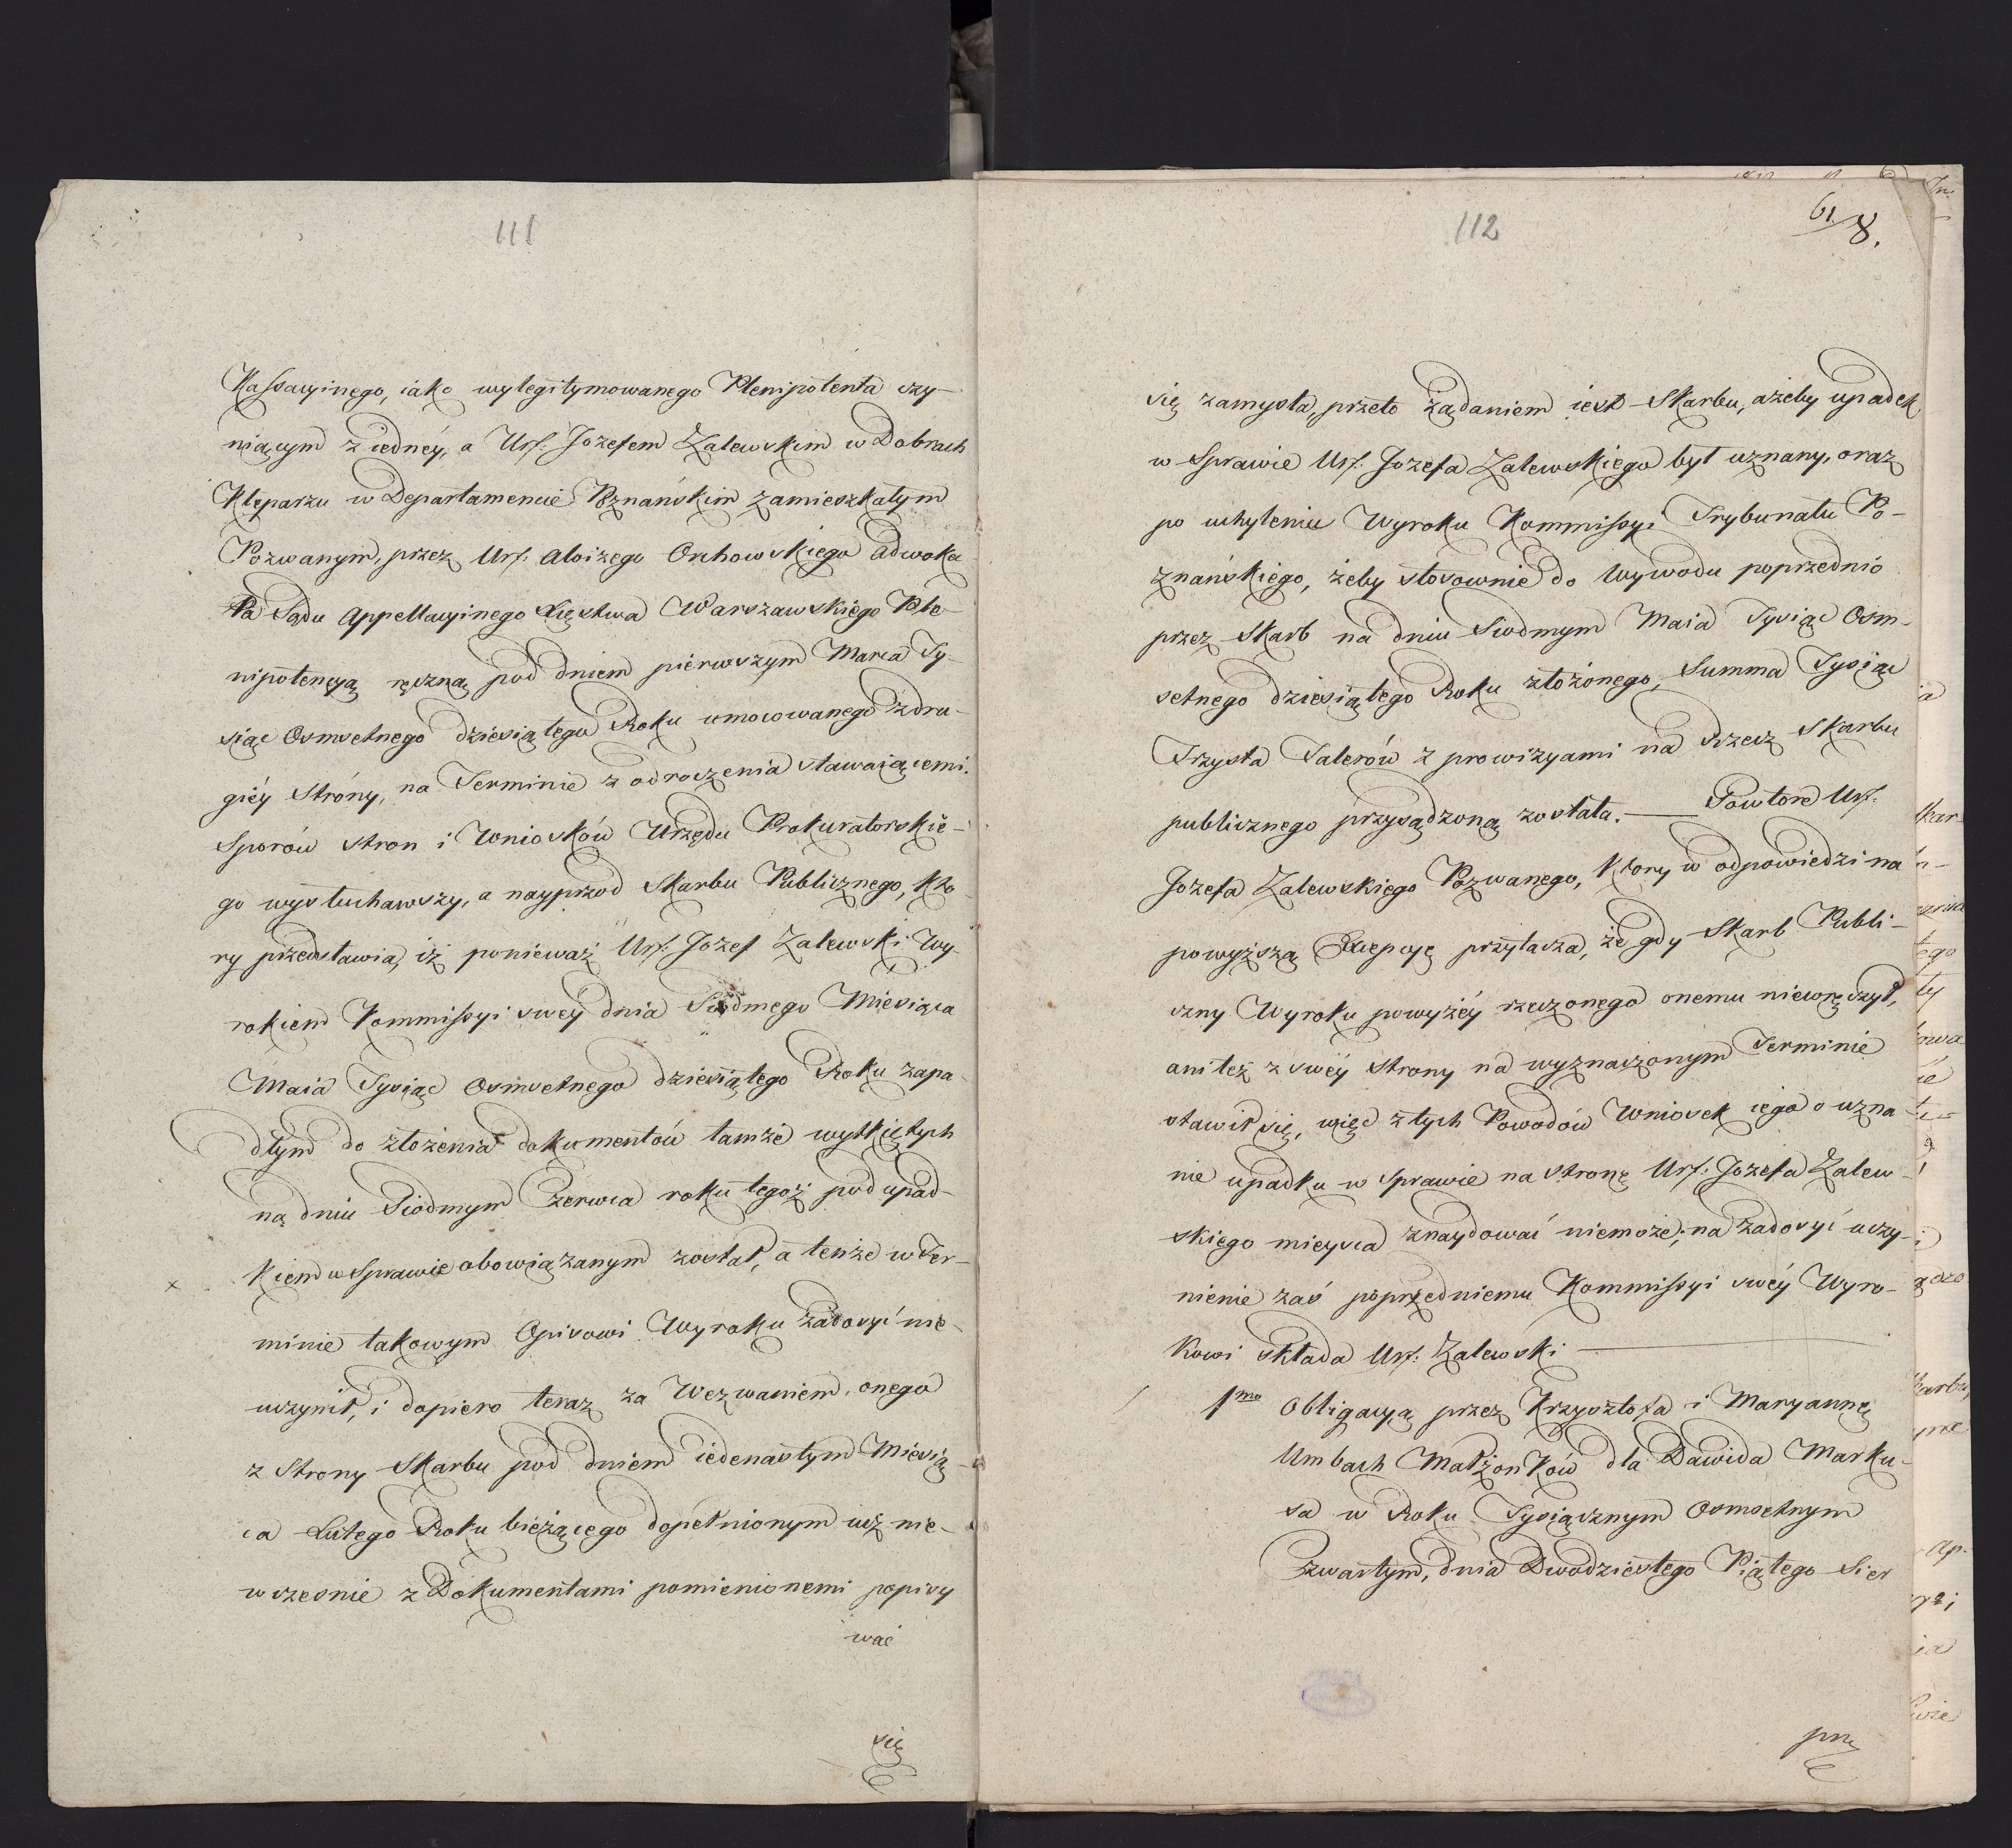 111
Kassacyinego, iako wylegitymowanego Plenipotenta czy-
niącym z iedney, a Ur. Jozefem Zalewskim w Dobrach
Kleparzu w Departamencie Poznańskim zamieszkałym
Pozwanym, przez Ur. Aloizego Orchowskiego Adwoka
ta Sądu Appellacyinego Xięstwa Warszawskiego Ple-
nipotencyą ręczną pod dniem pierwszym Marca Ty-
siąc Osmsetnego dziesiątego Roku umocowanego z dru-
giéy Stróny, na Terminie z odroczenia stawaiącemi.
Sporów stron i Wniosków Urzędu Prokuratorskie-
go wysłuchawszy, a nayprzod Skarbu Publicznego, kto-
ry przedstawia, iż ponieważ Ur. Jozef Zalewski Wy-
rokiem Kommissyi swey dnia Siodmego Miesiąca
Maia Tysiąc Osmsetnego dziesiątego Roku zapa-
dłym do złożenia dokumentów tamże wytkniętych
na dniu Siodmym Czerwca roku tegoż pod upad-
kiem w Sprawie obowiązanym został, a tenże w Ter-
minie takowym Opisowi Wyroku zadosyć nie-
uczynił, i dopiero teraz za Wezwaniem onego
z Strony Skarbu pod dniem iedenastym Miesią-
ca Lutego Roku bieżącego dopełnionym iuż nie-
wczesnie z Dokumentami pomienionemi popisy
wać
się
112
61
8.
się zamyśla, przeto żądaniem iest Skarbu, ażeby upadek
w Sprawie Ur. Jozefa Zalewskiego był uznany, oraz
po uchyleniu Wyroku Kommissyi Trybunału Po-
znańskiego, żeby stosownie do Wywodu poprzednio
przez Skarb na dniu Siodmym Maia Tysiąc Osm-
setnego dziesiątego Roku złożonego, Summa Tysiąc
Trzysta Talerów z prowizyami na Rzecz Skarbu
publicznego przysądzoną została. — Powtore Ur.
Jozefa Zalewskiego Pozwanego, Ktory w odpowiedzi na
powyższą Excepcyę przytacza, że gdy Skarb Publi-
czny Wyroku powyżéy rzeczonego onemu niewręczył,
ani też z swéy Strony na wyznaczonym Terminie
stawił się, więc z tych Powodów Wniosek iego o uzna
nie upadku w Sprawie na stronę Ur. Jozefa Zalew-
skiego mieysca znaydować niemoże; na zadosyć uczy-
nienie zaś poprzedniemu Kommissyi swéy Wyro-
kowi składa Ur. Zalewski —
1mo Obligacyą przez Krzysztofa i Maryannę
Umbach Małżonków dla Dawida Marku-
sa w Roku Tysiącznym Osmsetnym
Czwartym, dnia Dwudziestego Piątego Sier